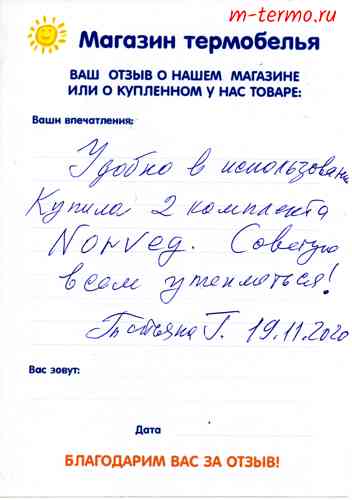 m-termo.ru
Магазин термобелья
ВАШ ОТЗЫВ О НАШЕМ МАГАЗИНЕ
ИЛИ О КУПЛЕННОМ У НАС ТОВАРЕ:
Ваши впечатления:
Удобно в использован
Купила 2 комплекта
Norveg. Советую
всем утепляться!
Татьяна Г. 19.11.2020
Вас зовут:
Дата
БЛАГОДАРИМ ВАС ЗА ОТЗЫВ!